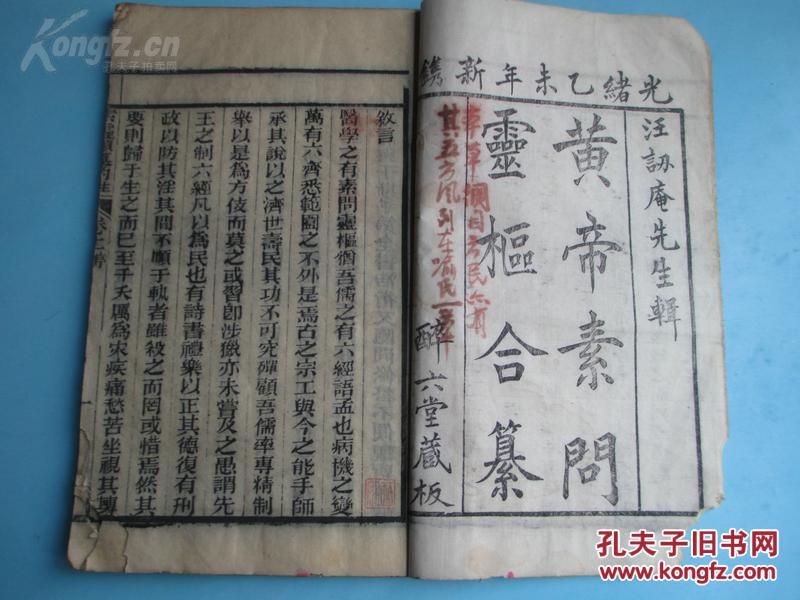 光緒乙未年新鐫
汪訒庵先生輯
黄帝素問
靈樞合纂
醉六堂蔵板
敘言
醫學之有素問靈樞猶吾儒之有六經語孟也病機之變
萬有六齊悉範圍之不外是焉古之宗工與今之能手師
承其說以之濟世壽民其功不可究殫顧吾儒率專精制
舉以是為方伎而莫之或習卽涉獵亦未嘗及之愚謂先
王之制六經凡以為民也有詩書禮樂以正其德復有刑
政以防其淫其間不順于軌者雖殺之而罔或惜焉然其
要則歸于生之而已至千夭厲為宋疾痛愁苦坐視其轉
Kongfz.cn
孔夫子拍卖网
孔夫子旧书网
www.kongfz.com